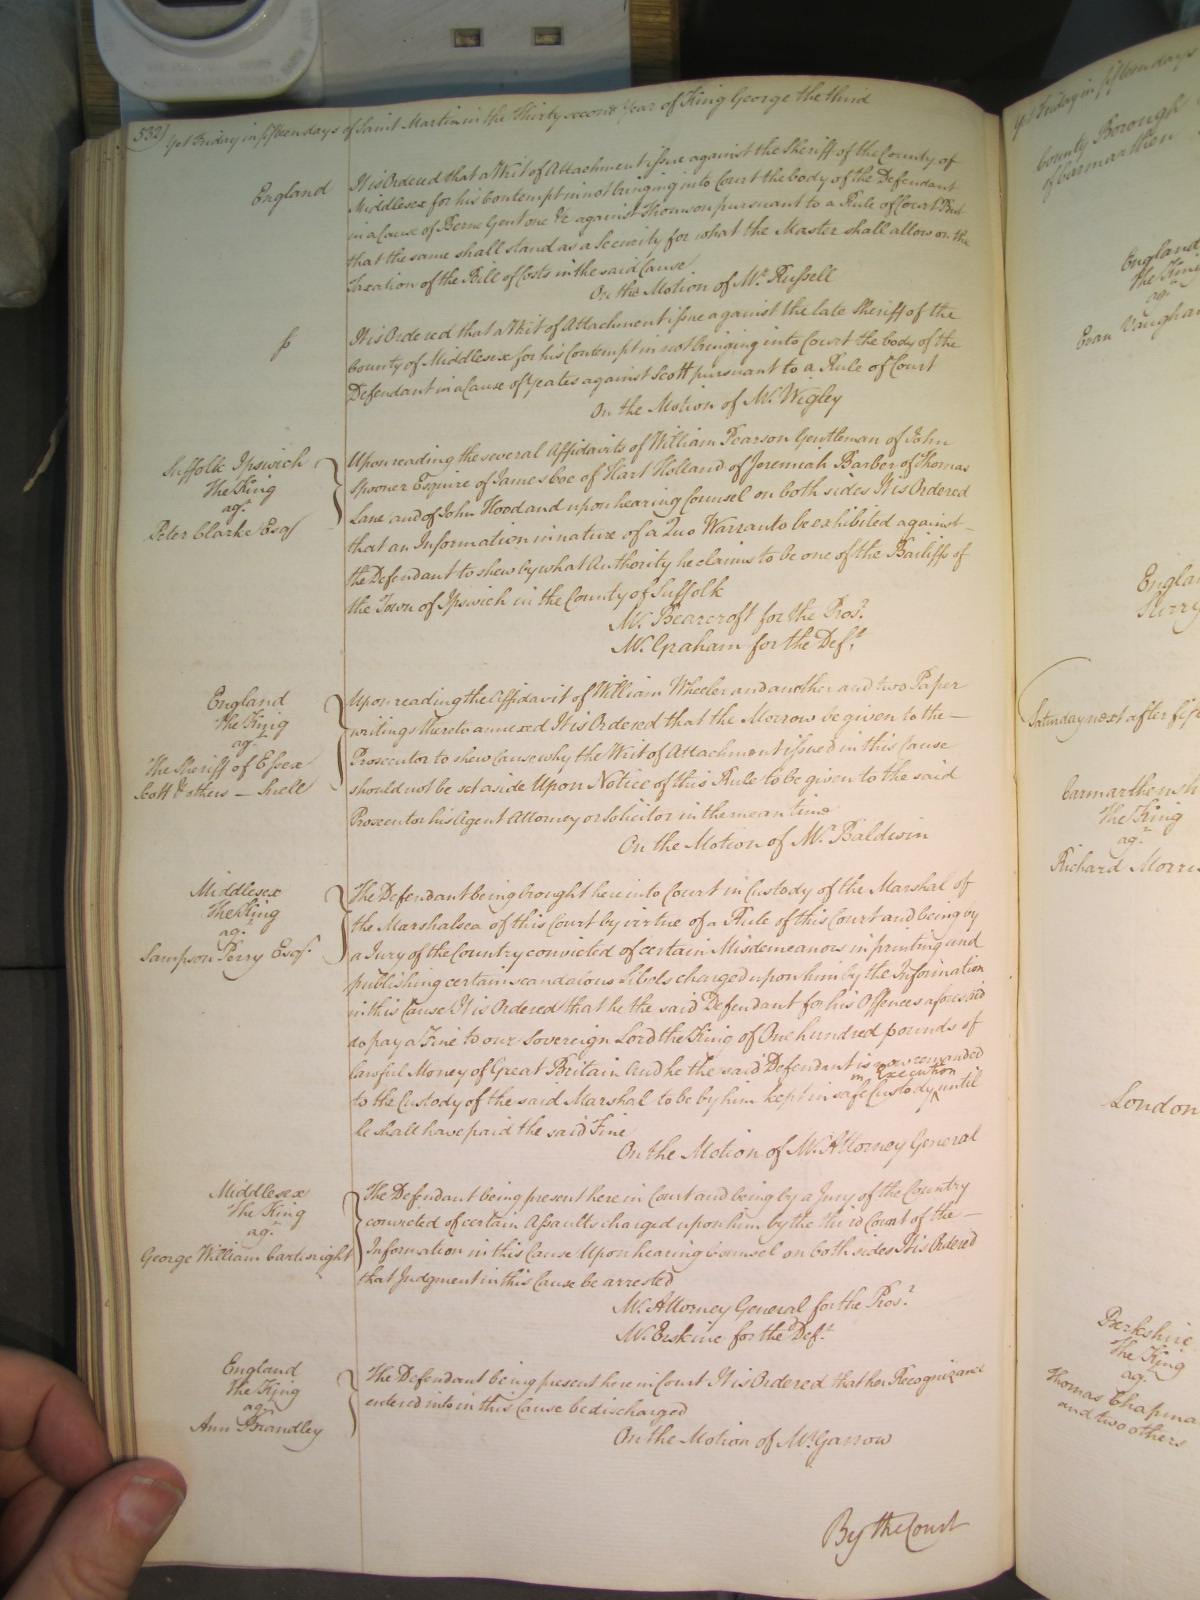 532) Yet Friday in fifteen days of Saint Martin in the Thirty second Year of King George the third
England
It is Ordered that a Writ of Attachment issue against the Sheriff of the County of
Middlesex for his Contempt in not bringing into Court the body of the Defendant
in a Cause of Berne Gent one &c against Thomson pursuant to a Rule of Court But
that the same shall stand as a Security for what the Master shall allow on the
Taxation of the Bill of Costs in the said Cause
On the Motion of Mr. Russell
It is Ordered that a Writ of Attachment issue against the late Sheriff of the
County of Middlesex for his Contempt in not bringing into Court the body of the
Defendant in a Cause of Yeates against Scott pursuant to a Rule of Court
On the Motion of Mr. Wigley
Suffolk Ipswich
The King
agt.
Peter Clarke Esqr
Upon reading the several Affidavits of William Pearson Gentleman of John
Spooner Esquire of James Coe of Hart Holland of Jeremiah Barber of Thomas
Lane and of John Hood and upon hearing Counsel on both sides It is Ordered
that an Information in nature of a Quo Warranto be exhibited against
the Defendant to shew by what Authority he claims to be one of the Bailiffs of
the Town of Ipswich in the County of Suffolk
Mr. Bearcroft for the Prosr.
Mr. Graham for the Deft.
England
The King
agt.
The Sheriff of Essex
Scott & others — Snell
Upon reading the Affidavit of William Wheeler and another and two Paper
writings thereto annexed It is Ordered that the Morrow be given to the —
Prosecutor to shew Cause why the Writ of Attachment issued in this Cause
should not be set aside Upon Notice of this Rule to be given to the said
Prosecutor his Agent Attorney or Solicitor in the mean time
On the Motion of Mr. Baldwin
Middlesex
The King
agt.
Sampson Perry Esqr.
The Defendant being brought here into Court in Custody of the Marshal of
the Marshalsea of this Court by virtue of a Rule of this Court and being by
a Jury of the Country convicted of certain Misdemeanors in printing and
publishing certain scandalous Libels charged upon him by the Information
in this Cause It is Ordered that he the said Defendant for his Offences aforesaid
do pay a Fine to our Sovereign Lord the King of One hundred pounds of
lawful Money of Great Britain And he the said Defendant is now remanded
to the Custody of the said Marshal to be by him kept in safe Custody ^ in Execution until
he shall have paid the said Fine
On the Motion of Mr. Attorney General
Middlesex
The King
agt.
George William Cartwright
The Defendant being present here in Court and being by a Jury of the Country
convicted of certain Assaults charged upon him by the third Count of the —
Information in this Cause Upon hearing Counsel on both sides It is Ordered
that Judgment in this Cause be arrested
Mr. Attorney General for the Prosr.
Mr. Erskine for the Deft.
England
The King
agt.
Ann Brandley
The Defendant being present here in Court It is Ordered that her Recognizance
entered into in this Cause be discharged
On the Motion of Mr. Garrow
By the Court
Yet Friday in fifteen days
County Borough
of Carmarthen
England
The King
agt.
Evan Vaughan
Saturday next after
The King
agt.
Richard Morris
London
Berkshire
The King
agt.
and two others